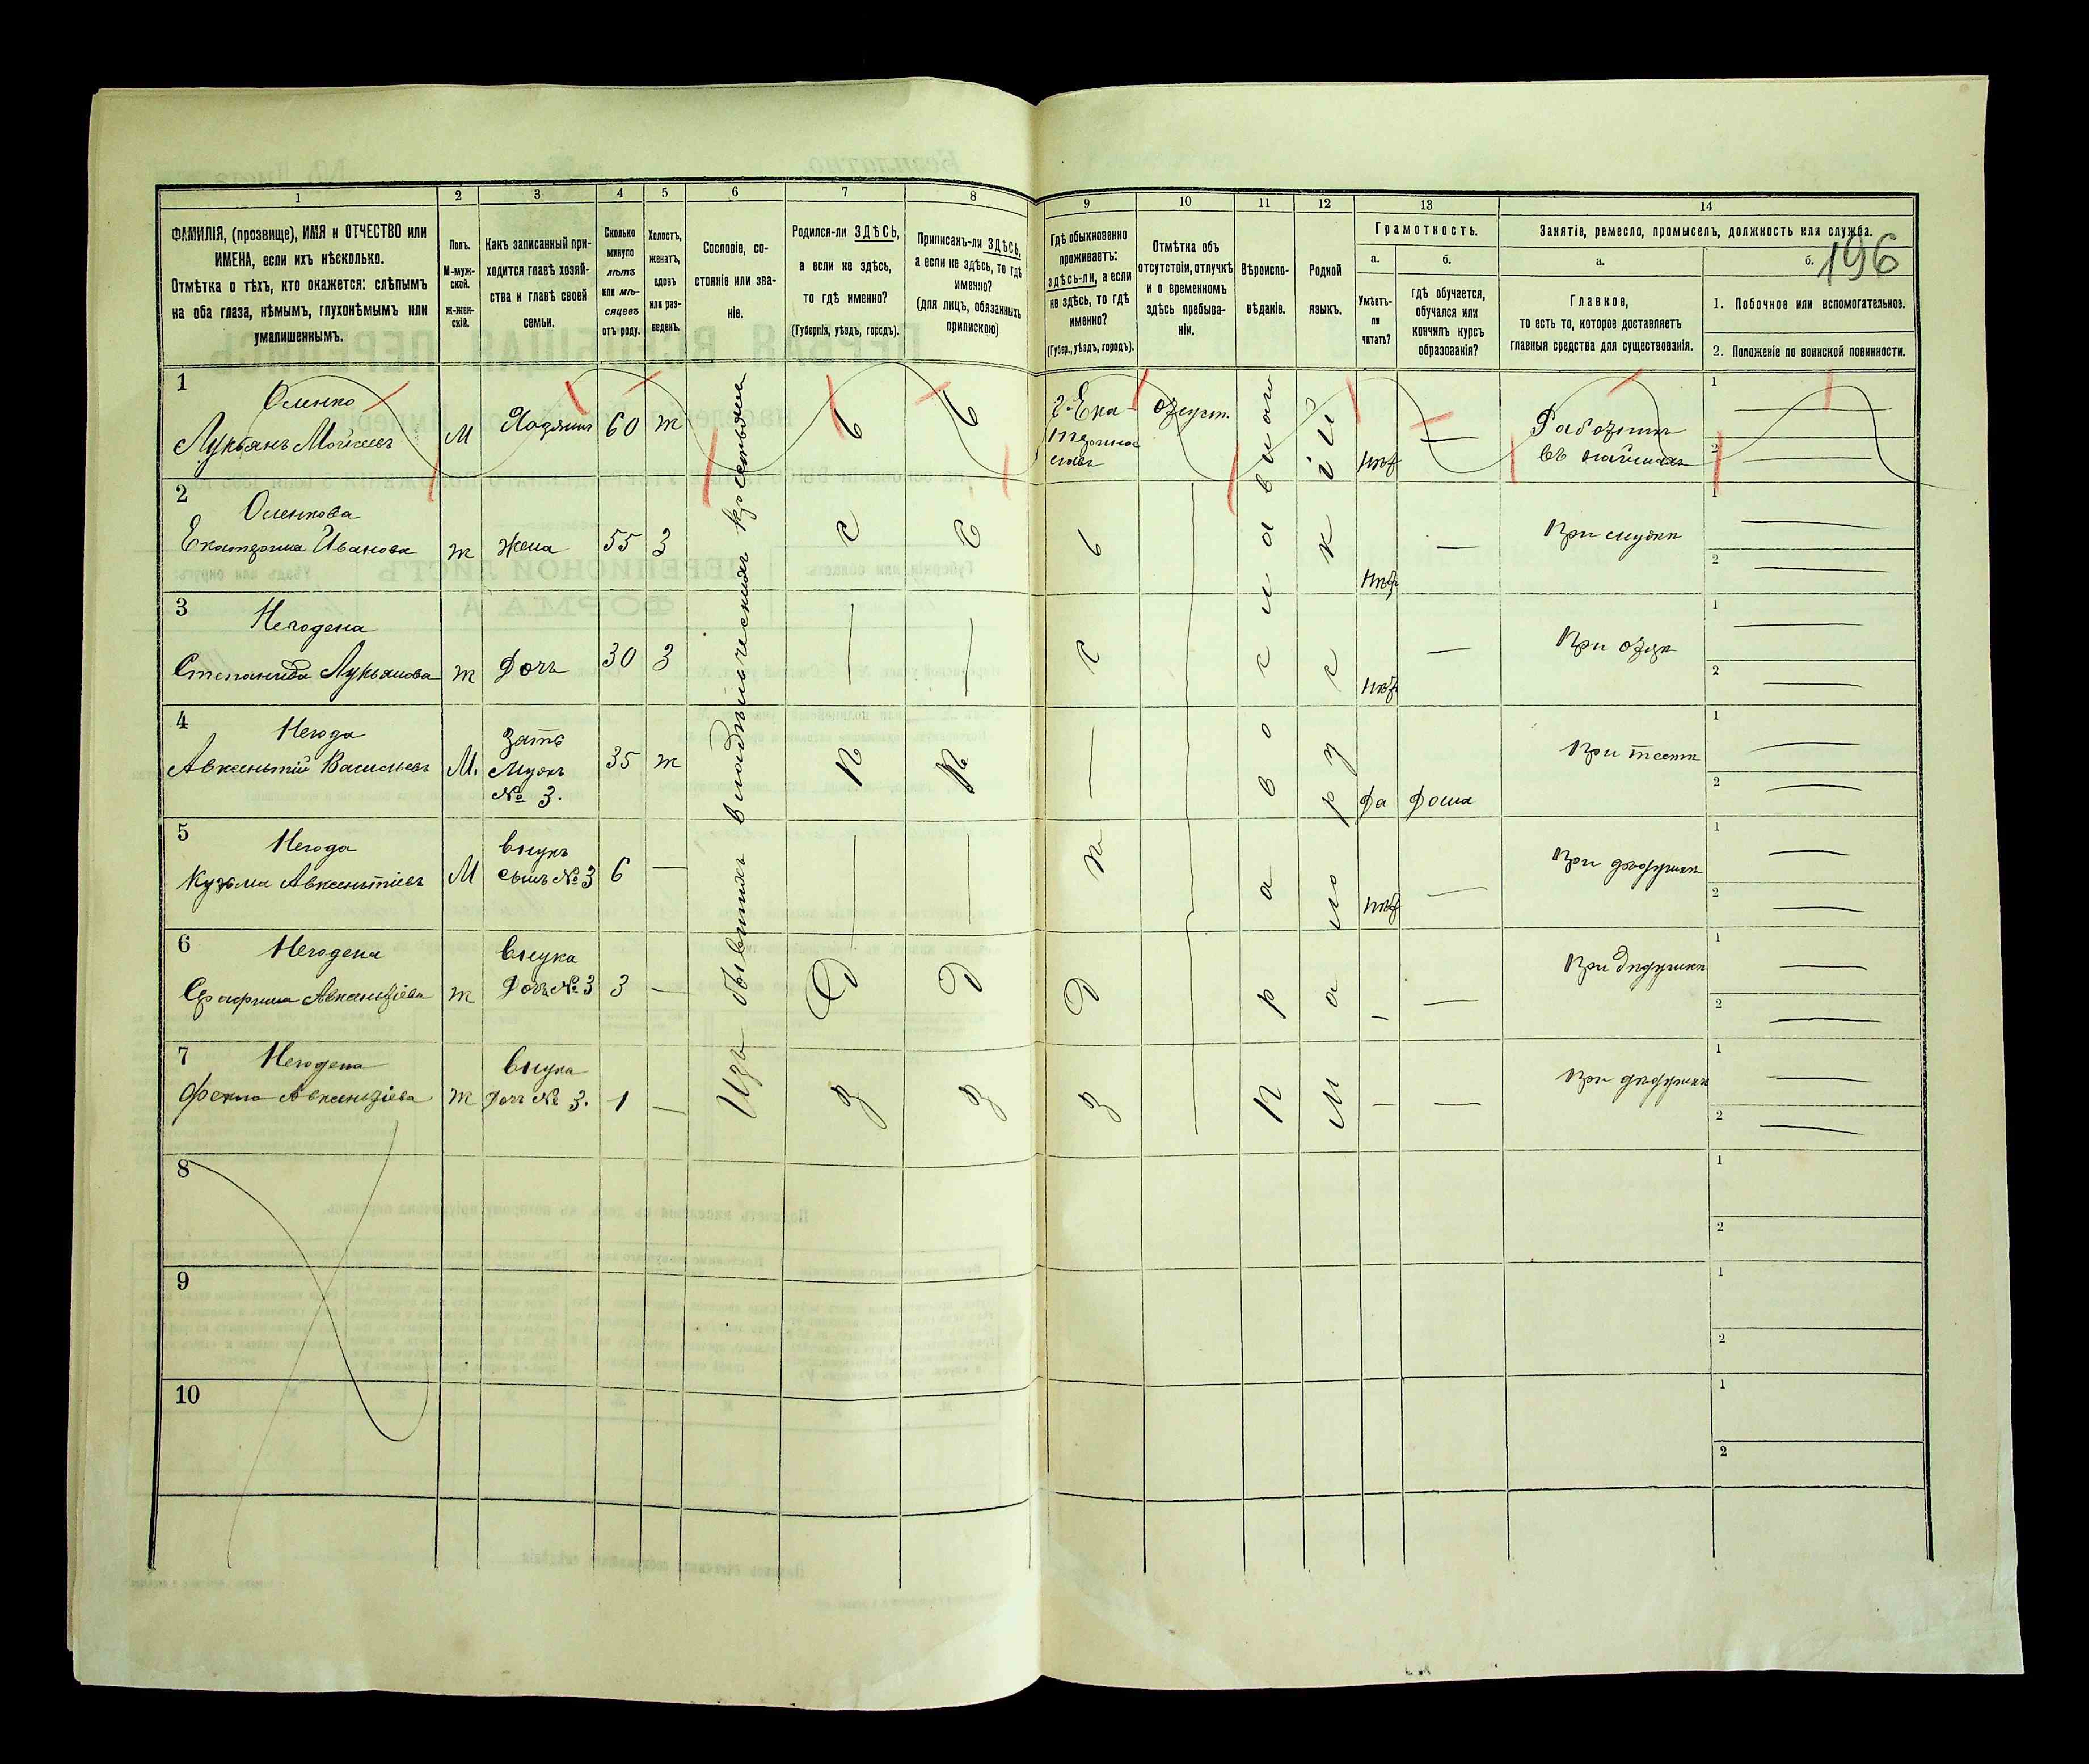 196
1 2 3 4 5 6 7 8 9 10 11 12 13 14
ФАМИЛІЯ, (прозвище), ИМЯ и ОТЧЕСТВО или
ИМЕНА, если ихъ нѣсколько.
Отмѣтка о тѣхъ, кто окажется: слѣпымъ
на оба глаза, нѣмымъ, глухонѣмымъ или
умалишеннымъ.
Полъ.
М-муж-
ской.
ж-жен-
скій.
Какъ записанный при-
ходится главѣ хозяй-
ства и главѣ своей
семьи.
Сколько
минуло
лѣтъ
или мѣ-
сяцевъ
отъ роду.
Холостъ,
женатъ,
вдовъ
или раз-
веденъ.
Сословіе, со-
стояніе или зва-
ніе.
Родился-ли ЗДѢСЬ,
а если не здѣсь,
то гдѣ именно?
(Губернія, уѣздъ, городъ).
Приписанъ-ли ЗДѢСЬ,
а если не здѣсь, то гдѣ
именно?
(для лицъ, обязанныхъ
припискою)
Гдѣ обыкновенно
проживаетъ:
здѣсь-ли, а если
не здѣсь, то гдѣ
именно?
(Губер., уѣздъ, городъ).
Отмѣтка объ
отсутствіи, отлучкѣ
и о временномъ
здѣсь пребыва-
ніи.
Вѣроиспо-
вѣданіе.
Родной
языкъ.
Грамотность.
а.
Умѣетъ-
ли
читать?
б.
Гдѣ обучается,
обучался или
кончилъ курсъ
образованія?
Занятіе, ремесло, промыселъ, должность или служба.
а.
Главное,
то есть то, которое доставляетъ
главныя средства для существованія.
б.
1. Побочное или вспомогательное.
2. Положеніе по воинской повинности.
1
Оленко
Лукьянъ Мойсеевъ
М
Хозяинъ
60
ж
г. Ека-
терино
славъ
отсут.
нѣт
Работникъ
въ наймахъ
1
2
2
Оленкова
Екатерина Иванова
ж
жена
55
З
нѣт
При мужѣ
1
2
3
Негодена
Степанида Лукьянова
ж
Дочь
30
З
нѣт
При отцѣ
1
2
4
Негода
Авксентій Васильевъ
М.
Зять
Мужъ
№ 3.
35
ж
Да
Дома
При тестѣ
1
2
5
Негода
Кузьма Авксентіевъ
М
внукъ
сынъ № 3
6
нѣт
При дѣдушкѣ
1
2
6
Негодена
Авксентіева
ж
внука
Дочь № 3
3
При дѣдушкѣ
1
2
7
Негодена
Фекла Авксентіева
ж
внука
Дочь № 3.
1
При дѣдушкѣ
1
2
Изъ бывшихъ владѣльческихъ крестьянъ
Здѣсь
Здѣсь
Здѣсь
Православная
Малорусскій
8
1
2
9
1
2
10
1
2